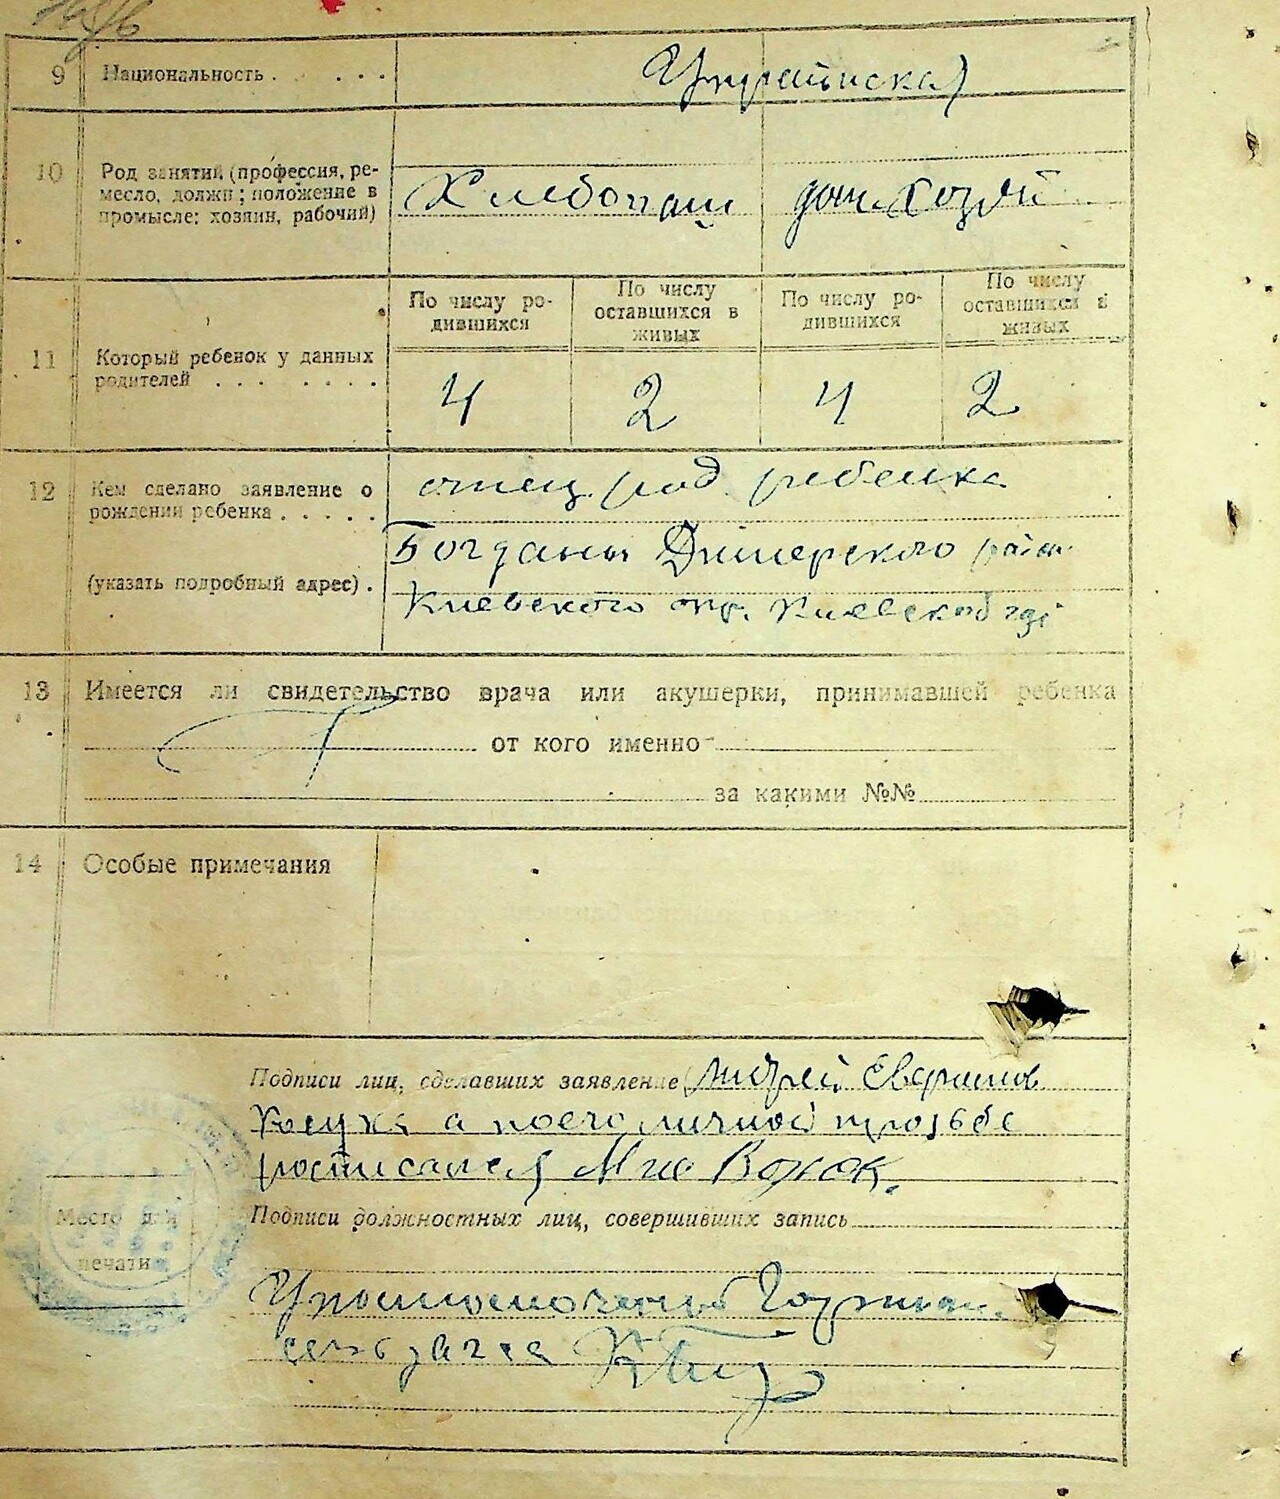 9 Национальность . . . . .
Украинская
10 Род занятий (профессия, ре-
месло, должн; положение в
промысле: хозяин, рабочий)
Хлебопаш дом. Хозяй
По числу ро-
дившихся
По числу
оставшихся в
живых
По числу ро-
дившихся
По числу
оставшихся в
живых
11 Который ребенок у данных
родителей . . . . . . . .
4 2 4 2
12 Кем сделано заявление о
рождении ребенка . . . . .
(указать подробный адрес) .
отец род. ребенка
Богданы Димерского район.
Киевского окр. Киевской
13 Имеется ли свидетельство врача или акушерки, принимавшей ребенка
от кого именно
за какими №№
14 Особые примечания
Подписи лиц, сделавших заявление Андрей
а по его личной прозьбе
росписался
Подписи должностных лиц, совершивших запись
Место для
печати
Уполномоченый
сельзагса